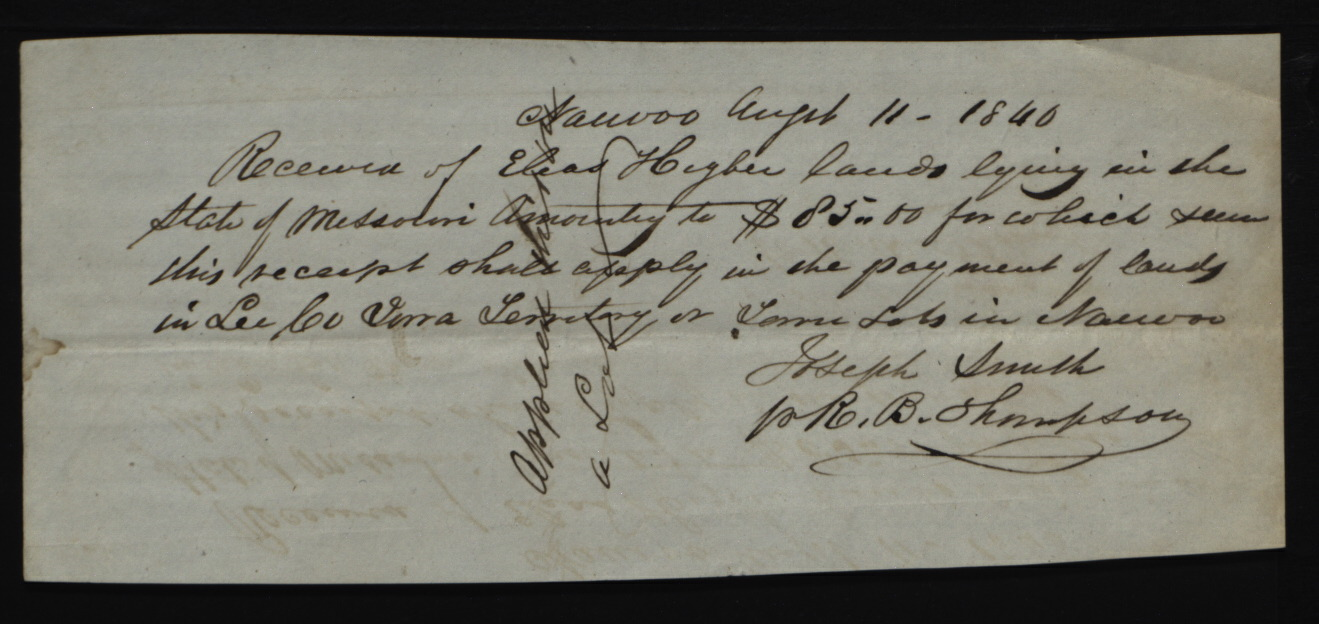 Nauvoo Augst 11 - 1840
Received of Elias Higbee lands lying in the
State of Missouri Amounting to $85.00 for which sum
this receipt shall apply in the payment of lands
in Lee Co Iowa Territory or Town Lots in Nauvoo
Joseph Smith
pr R. B. Thompson
Applied
a Lot